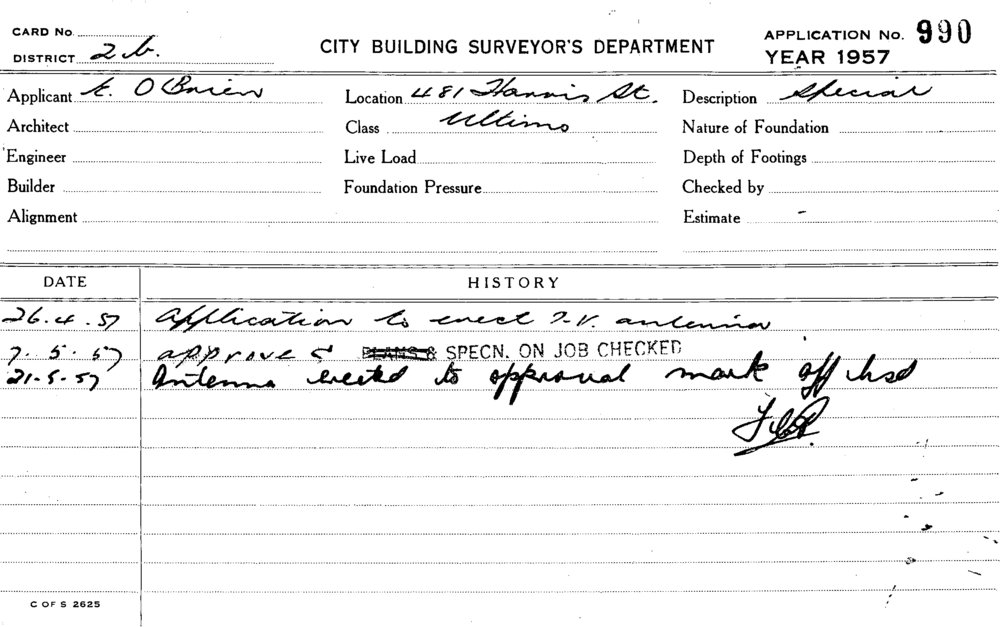 CARD No.
DISTRICT 2b.
CITY BUILDING SURVEYOR'S DEPARTMENT
APPLICATION No. 990
YEAR 1957
Applicant K. O'Brien Location 481 Harris St. Description Special
Architect Class Ultimo Nature of Foundation
Engineer Live Load Depth of Footings
Builder Foundation Pressure Checked by
Alignment Estimate -
DATE HISTORY
26.4.57 Application to erect T.V. antenna
7.5.57 approved PLANS & SPECN. ON JOB CHECKED
21.5.57 Antenna erected to approval mark off
C OF S 2625